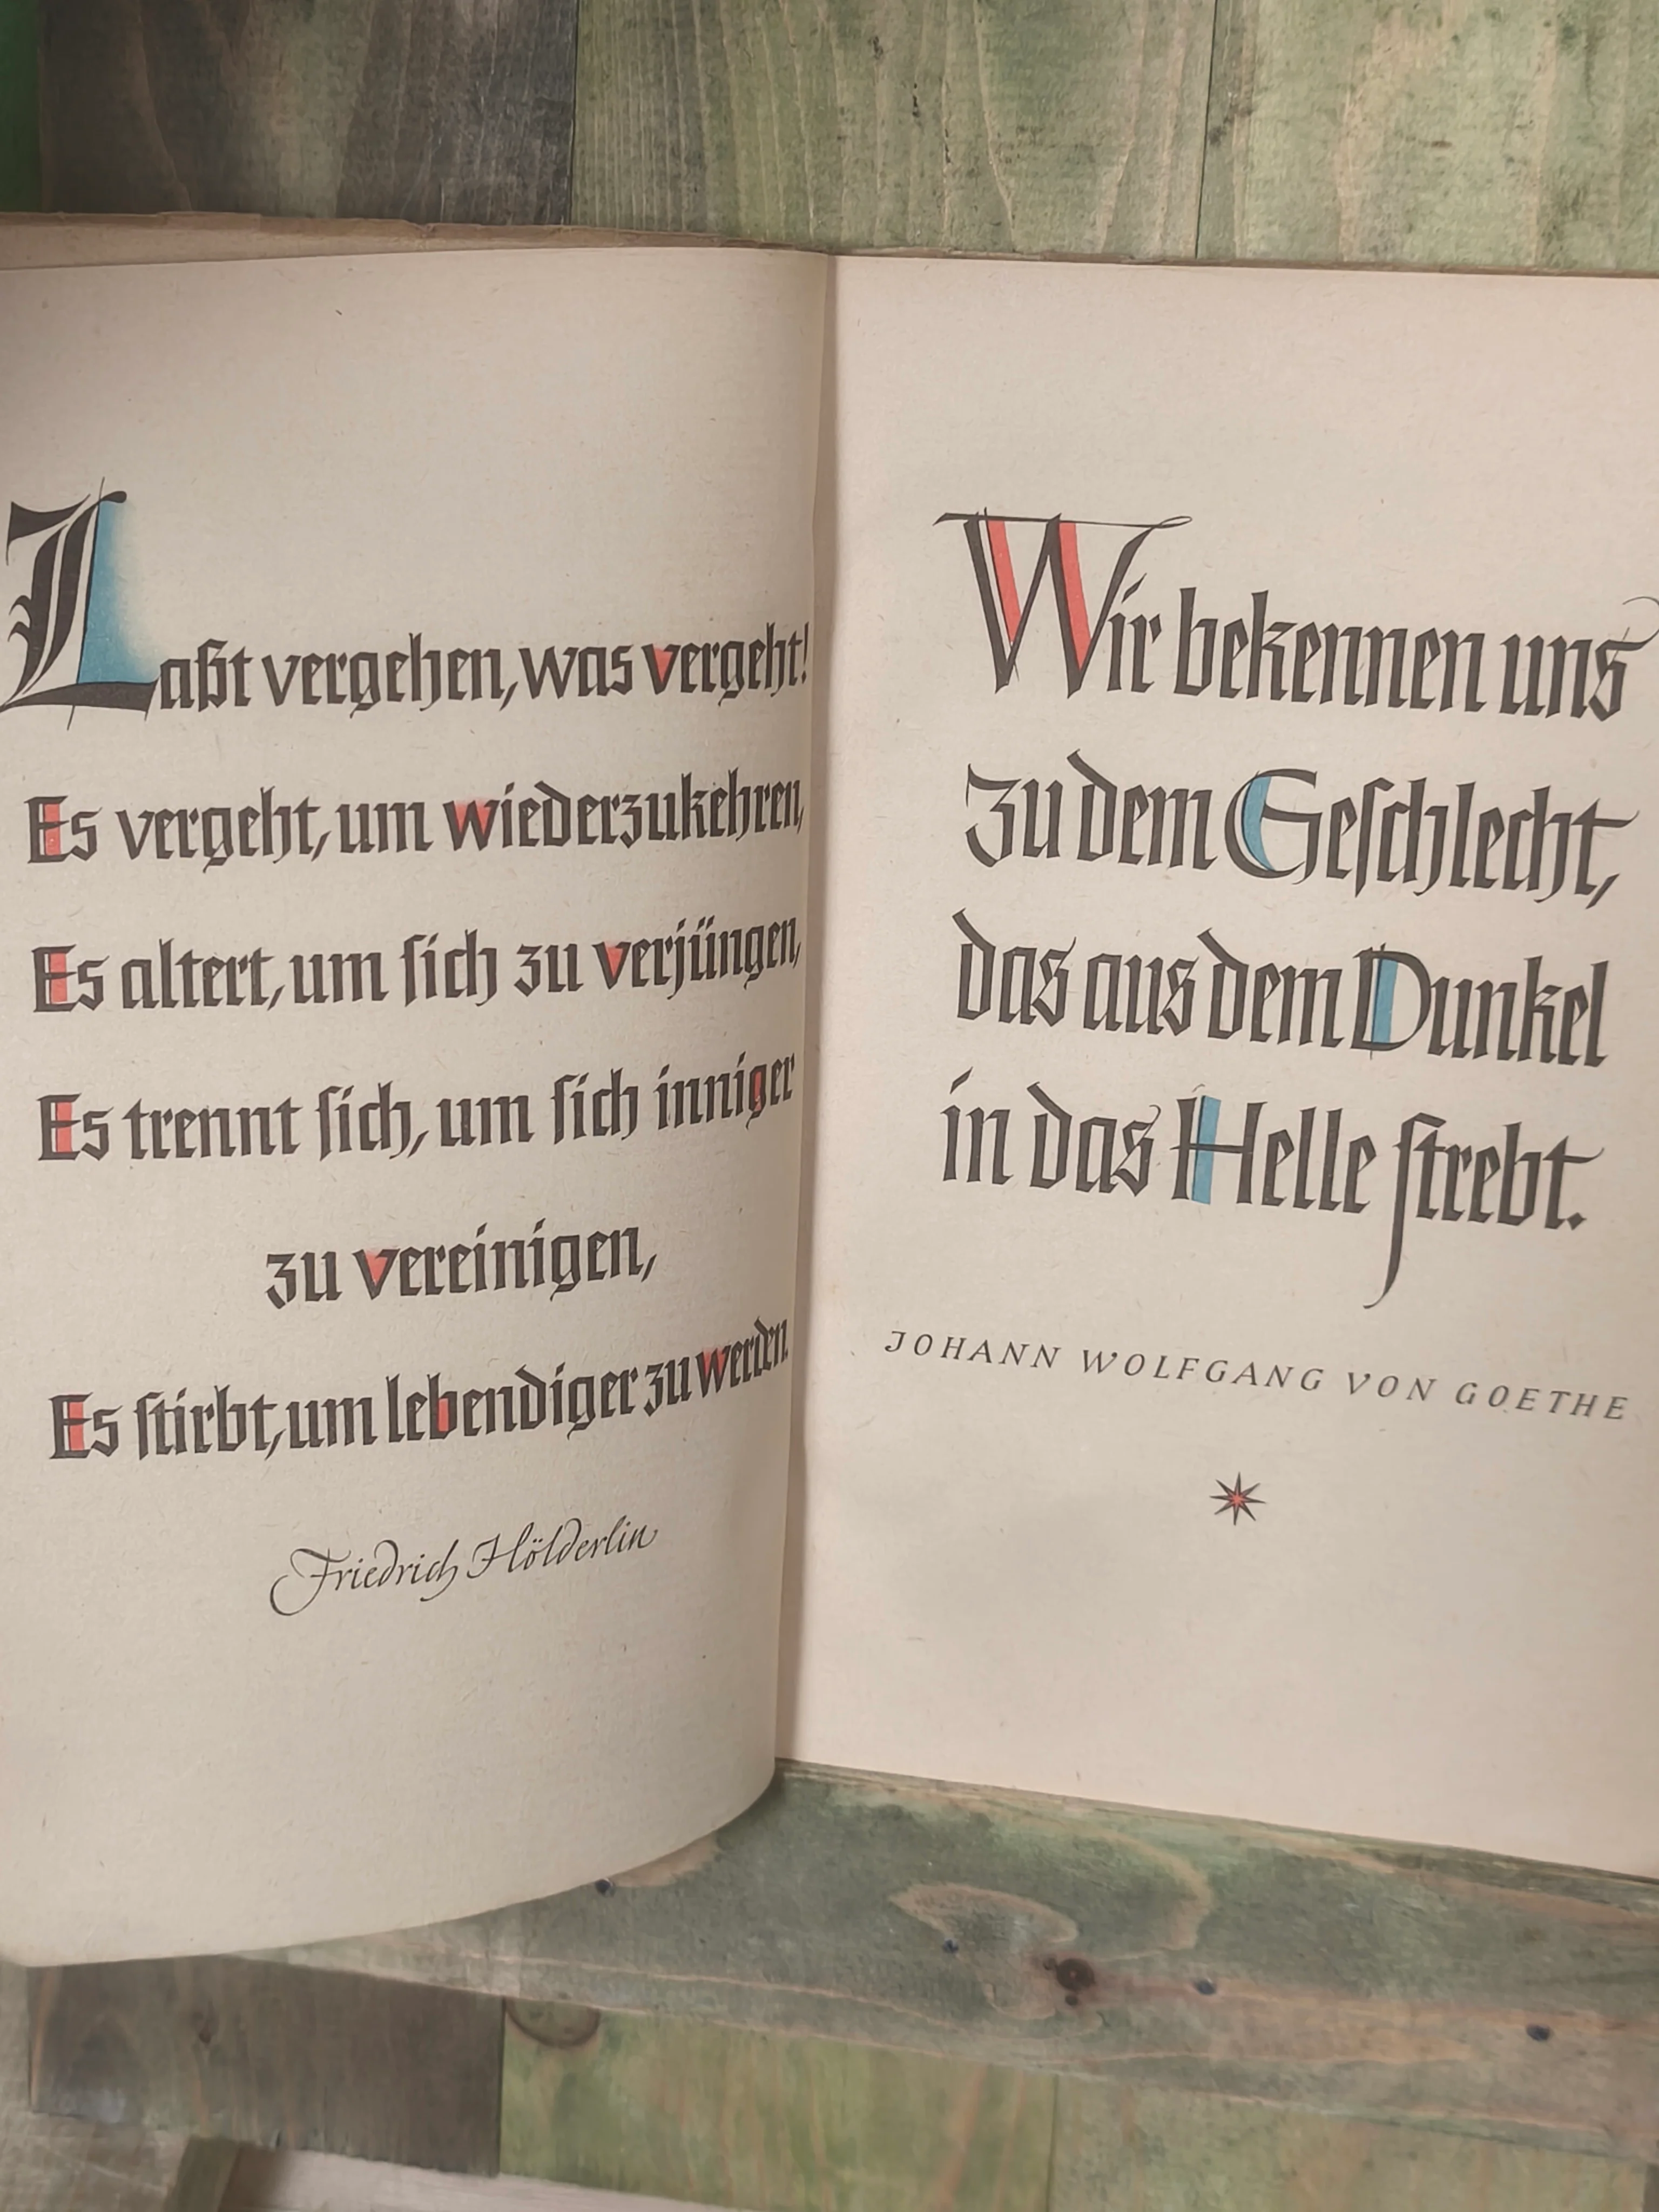 Laßt vergehen, was vergeht!
Es vergeht, um wiederzukehren,
Es altert, um sich zu verjüngen,
Es trennt sich, um sich inniger
zu vereinigen,
Es stirbt, um lebendiger zu werden.
Friedrich Hölderlin
Wir bekennen uns
zu dem Geschlecht,
das aus dem Dunkel
in das Helle strebt.
JOHANN WOLFGANG VON GOETHE